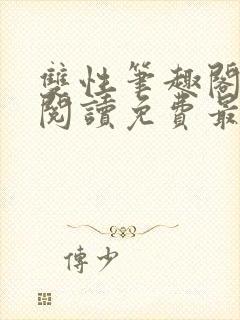 雙性筆趣閣
閱讀免費最
傅少